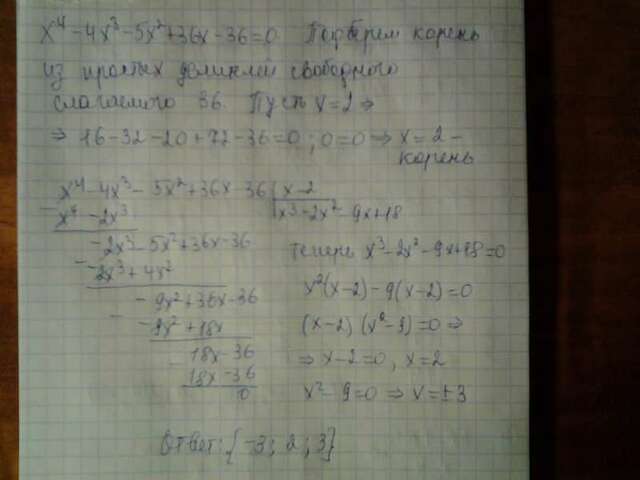 x⁴-4x³-5x²+36x-36=0. Подберем корень
из простых делителей свободного
слагаемого 36. Пусть x=2 ⇒
⇒ 16-32-20+72-36=0; 0=0 ⇒ x=2 -
корень
x⁴-4x³-5x²+36x-36 | x-2
x⁴-2x³
x³-2x²-9x+18
-2x³-5x²+36x-36
-2x³+4x²
-9x²+36x-36
-9x²+18x
18x-36
18x-36
0
теперь x³-2x²-9x+18=0
x²(x-2)-9(x-2)=0
(x-2)(x²-9)=0 ⇒
⇒ x-2=0, x=2
x²-9=0 ⇒ x=±3
Ответ: {-3; 2; 3}